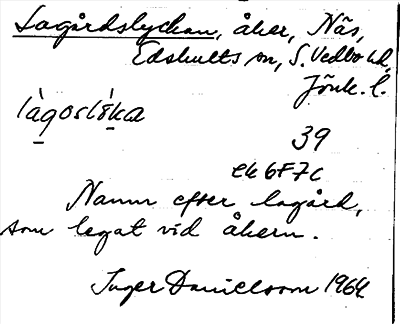 Lagårdslyckan, åker, Näs,
Edshults sn, S. Vedbo hd,
Jönk. l.
39
ek 6F7c
Namn efter lagård,
som legat vid åkern.
Inger Danielsson 1964